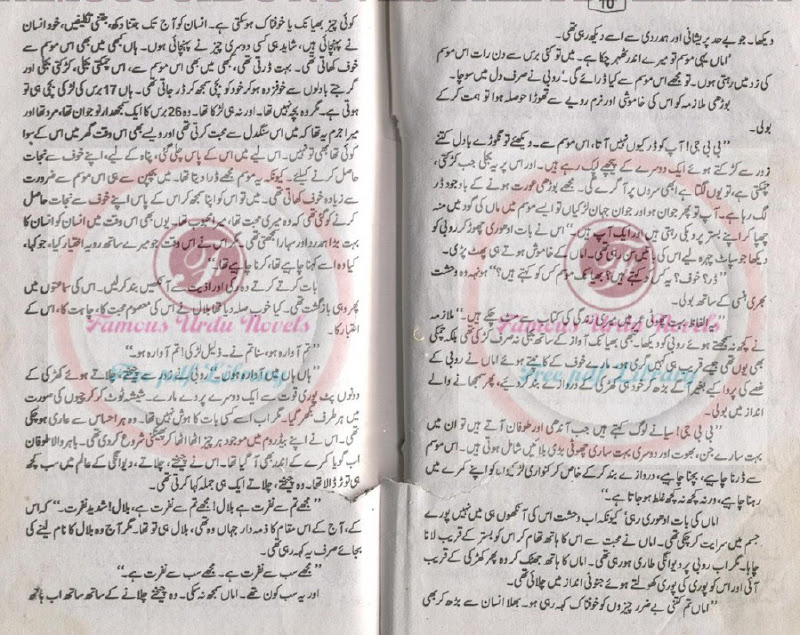 10
دیکھا۔ جو بے حد پریشانی اور ہمدردی سے اسے دیکھ رہی تھی۔
’اماں یہی موسم تو میرے اندر ٹھہر چکا ہے۔ میں تو کئی برس سے دن رات اس موسم
کی زد میں رہتی ہوں۔ تو مجھے اس موسم سے کیا ڈرائے گی۔‘ روبی نے صرف دل میں سوچا۔
بوڑھی ملازمہ کو اس کی خاموشی اور نرم رویے سے تھوڑا حوصلہ ہوا تو ہمت کر کے
بولی۔
’’بی بی جی! آپ کو ڈر کیوں نہیں آتا، اس موسم سے۔ دیکھئے تو نگوڑے بادل کتنے
زور سے کڑکتے ہوئے ایک دوسرے کے پیچھے لپک رہے ہیں۔ اور اس پر یہ بجلی جب کڑکتی،
چمکتی ہے، تو یوں لگتا ہے ابھی سروں پر آ گرے گی۔ مجھے بوڑھی عورت ہونے کے باوجود ڈر
لگ رہا ہے۔ آپ تو پھر جوان ہو اور جوان جہان لڑکیاں تو ایسے موسم میں ماں کی گود میں منہ
چھپا کر اپنے بستر پر دبکی رہتی ہیں اور ایک آپ ہیں۔‘‘ اس نے بات ادھوری چھوڑ کر روبی کو
دیکھا جو سپاٹ چہرہ لیے اس کی بات سن رہی تھی۔ اماں کے خاموش ہوتے ہی پھٹ پڑی۔
’’ڈر؟ خوف؟ یہ کس کو کہتے ہیں؟ بھیانک موسم کس کو کہتے ہیں؟‘‘ ہونہہ وہ وحشت
بھری ہنسی کے ساتھ بولی۔
’’یہ الفاظ بہت چھوٹے ہیں میری زندگی کی کتاب سے مٹ چکے ہیں۔‘‘ ملازمہ
نے کچھ نہ سمجھتے ہوئے روبی کو دیکھا۔ بجلی بھیانک آواز کے ساتھ نہ صرف کڑکی تھی بلکہ چمکی
بھی یوں تھی جیسے قریب ہی کہیں گری ہو۔ مارے خوف کے کانپتے ہوئے اماں نے روبی کے
غصے کی پروا کیے بغیر آگے بڑھ کر خود ہی کھڑکی کے دروازے بند کر دئیے، پھر سمجھانے والے
انداز میں بولی۔
’’بی بی جی! سیانے لوگ کہتے ہیں جب آندھی اور طوفان آتے ہیں تو ان میں
بہت سارے جن، بھوت اور دوسری بہت ساری چھوٹی بڑی بلائیں شامل ہوتی ہیں۔ اس موسم
سے ڈرنا چاہیے، بچنا چاہیے، دروازے بند کر کے خاص کر کنواری لڑکیوں کو اپنے کمرے میں
رہنا چاہیے، ورنہ کچھ نہ کچھ غلط ہو جاتا ہے۔‘‘
اماں کی بات ادھوری رہی‘ کیونکہ اب وحشت اس کی آنکھوں ہی میں نہیں پورے
جسم میں سرایت کر چکی تھی۔ اماں نے محبت سے اس کا ہاتھ تھام کر اس کو بستر کے قریب لانا
چاہا۔ مگر اب روبی پر دیوانگی طاری ہو رہی تھی۔ اماں کا ہاتھ جھٹک کر وہ پھر کھڑکی کے قریب
آئی اور اس کو پوری کی پوری کھولتے ہوئے جنونی انداز میں چلائی تھی۔
’’اماں تم کتنی بے ضرر چیزوں کو خوفناک کہہ رہی ہو۔ بھلا انسان سے بڑھ کر بھی
کوئی چیز بھیانک یا خوفناک ہو سکتی ہے۔ انسان کو آج تک جتنا دکھ، جتنی تکلیفیں، خود انسان
نے پہنچائی ہیں، شاید ہی کسی دوسری چیز نے پہنچائی ہوں۔ ہاں کبھی میں بھی اس موسم سے
خوف کھاتی تھی۔ بہت ڈرتی تھی، کبھی میں بھی اس موسم سے، اس چمکتی بجلی، کڑکتی بجلی اور
گرجتے بادلوں سے خوفزدہ ہو کر خود کو بچی سمجھ کر ڈر جاتی تھی۔ ہاں 17 برس کی لڑکی بچی ہی تو
ہوتی ہے۔ مگر وہ بچہ نہیں تھا۔ اور نہ ہی لڑکا تھا۔ وہ 26 برس کا ایک سمجھدار نوجوان تھا، مرد تھا اور
میرا جرم یہ تھا کہ میں اس سنگدل سے محبت کرتی تھی اور ویسے بھی اس وقت گھر میں اس کے سوا
کوئی تھا بھی تو نہیں۔ اس لیے میں اس کے پاس چلی گئی، پناہ کے لیے، اپنے خوف سے نجات
حاصل کرنے کو لیے۔ کیونکہ یہ موسم مجھے ڈرا دیتا تھا۔ میں بچپن سے ہی اس موسم سے ضرورت
سے زیادہ خوف کھاتی تھی۔ میں تو اس کو اپنا سمجھ کر اس کے پاس اپنے خوف سے نجات حاصل
کرنے کو گئی تھی کہ وہ میری محبت تھا، میرا محبوب تھا۔ یوں بھی اس وقت میں انسان کو انسان کا
بہت بڑا ہمدرد اور سہارا سمجھتی تھی۔ مگر اس نے اس وقت جو میرے ساتھ رویہ اختیار کیا، جو کہا،
کیا وہ اسے کہنا چاہیے تھا، کرنا چاہیے تھا۔‘‘
بات کرتے کرتے وہ رکی اور اذیت سے آنکھیں بند کر لیں۔ اس کی سماعتوں میں
پھر وہی بازگشت تھی۔ کیا خوب صلہ دیا تھا بلال نے اس کی معصوم محبت کا، چاہت کا، اس کے
اعتبار کا۔
’’تم آوارہ ہو، سنا تم نے۔ ذلیل لڑکی! تم آوارہ ہو۔‘‘
’’ہاں ہاں میں آوارہ ہوں۔‘‘ روبی نے زور سے چیختے، چلاتے ہوئے کھڑکی کے
دونوں پٹ پوری قوت سے ایک دوسرے پر دے مارے۔ شیشہ ٹوٹ کر کرچیوں کی صورت
میں ہر طرف بکھر گیا۔ مگر اب اسے کسی بات کا ہوش نہیں تھا۔ وہ ہر احساس سے عاری ہو چکی
تھی۔ اس نے اپنے بیڈ روم میں موجود ہر چیز اٹھا اٹھا کر پھینکنی شروع کر دی تھی۔ باہر والا طوفان
اب گویا کمرے کے اندر بھی آ گیا تھا۔ اس نے چیختے، چلاتے، دیوانگی کے عالم میں سب کچھ
ہی توڑ ڈالا تھا۔ وہ چیختے، چلاتے ایک ہی جملہ کہا کرتی تھی۔
’’مجھے تم سے نفرت ہے بلال! مجھے تم سے نفرت ہے، بلال! شدید نفرت۔‘‘ کہ اس
کے، آج کے اس مقام کا ذمہ دار جہاں وہ تھی، بلال ہی تو تھا۔ مگر آج وہ بلال کا نام لینے کی
بجائے صرف یہ کہہ رہی تھی۔
’’مجھے سب سے نفرت ہے۔ مجھے سب سے نفرت ہے۔‘‘
اور یہ سب کون تھے۔ اماں سمجھ نہ سکی۔ وہ چیخنے چلانے کے ساتھ ساتھ اب ہاتھ
Famous Urdu Novels
Free pdf Library
Famous Urdu Novels
Free pdf Library